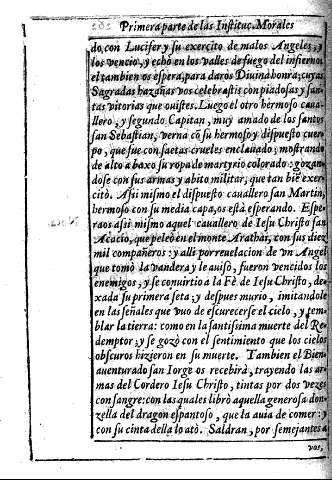 Primera parte de las Instituc. Morales
do, con Lucifer y su exercito de malos Angeles, y
los vencio, y echò en los valles de fuego del infierno:
el tambien os espera, para daros Diuina honra; cuyas
Sagradas hazañas vos celebrastis con piadosas y san-
tas vitorias que ouistes. Luego el otro hermoso caua-
llero, y segundo Capitan, muy amado de los santos
san Sebastian, verna cõ su hermoso y dispuesto cuer-
po, que fue con saetas crueles enclauado; mostrando
de alto a baxo su ropa de martyrio colorado: gozan-
dose con sus armas y abito militar, que tan biẽ exer-
citò. Assi mismo el dispuesto cauallero san Martin,
hermoso con su media capa, os està esperando. Espe-
raos assi mismo aquel cauallero de Iesu Christo san
Acacio, que peleò en el monte Arathar, con sus diez
mil compañeros: y alli por reuelacion de vn Angel
que tomò la vandera y le auiso, fueron vencidos los
enemigos, y se conuirtio a la Fè de Iesu Christo, de-
xada su primera seta; y despues murio, imitandole
en las señales que vuo de escurecerse el cielo, y tem-
blar la tierra: como en la santissima muerte del Re-
demptor; y se gozò con el sentimiento que los cielos
obscuros hizieron en su muerte. Tambien el Bien
auenturado san Iorge os recebirà, trayendo las ar-
mas del Cordero Iesu Christo, tintas por dos vezes
con sangre: con las quales librò aquella generosa don-
zella del dragon espantoso, que la auia de comer: y
con su cinta della lo atò. Saldran, por semejantes a
vos,